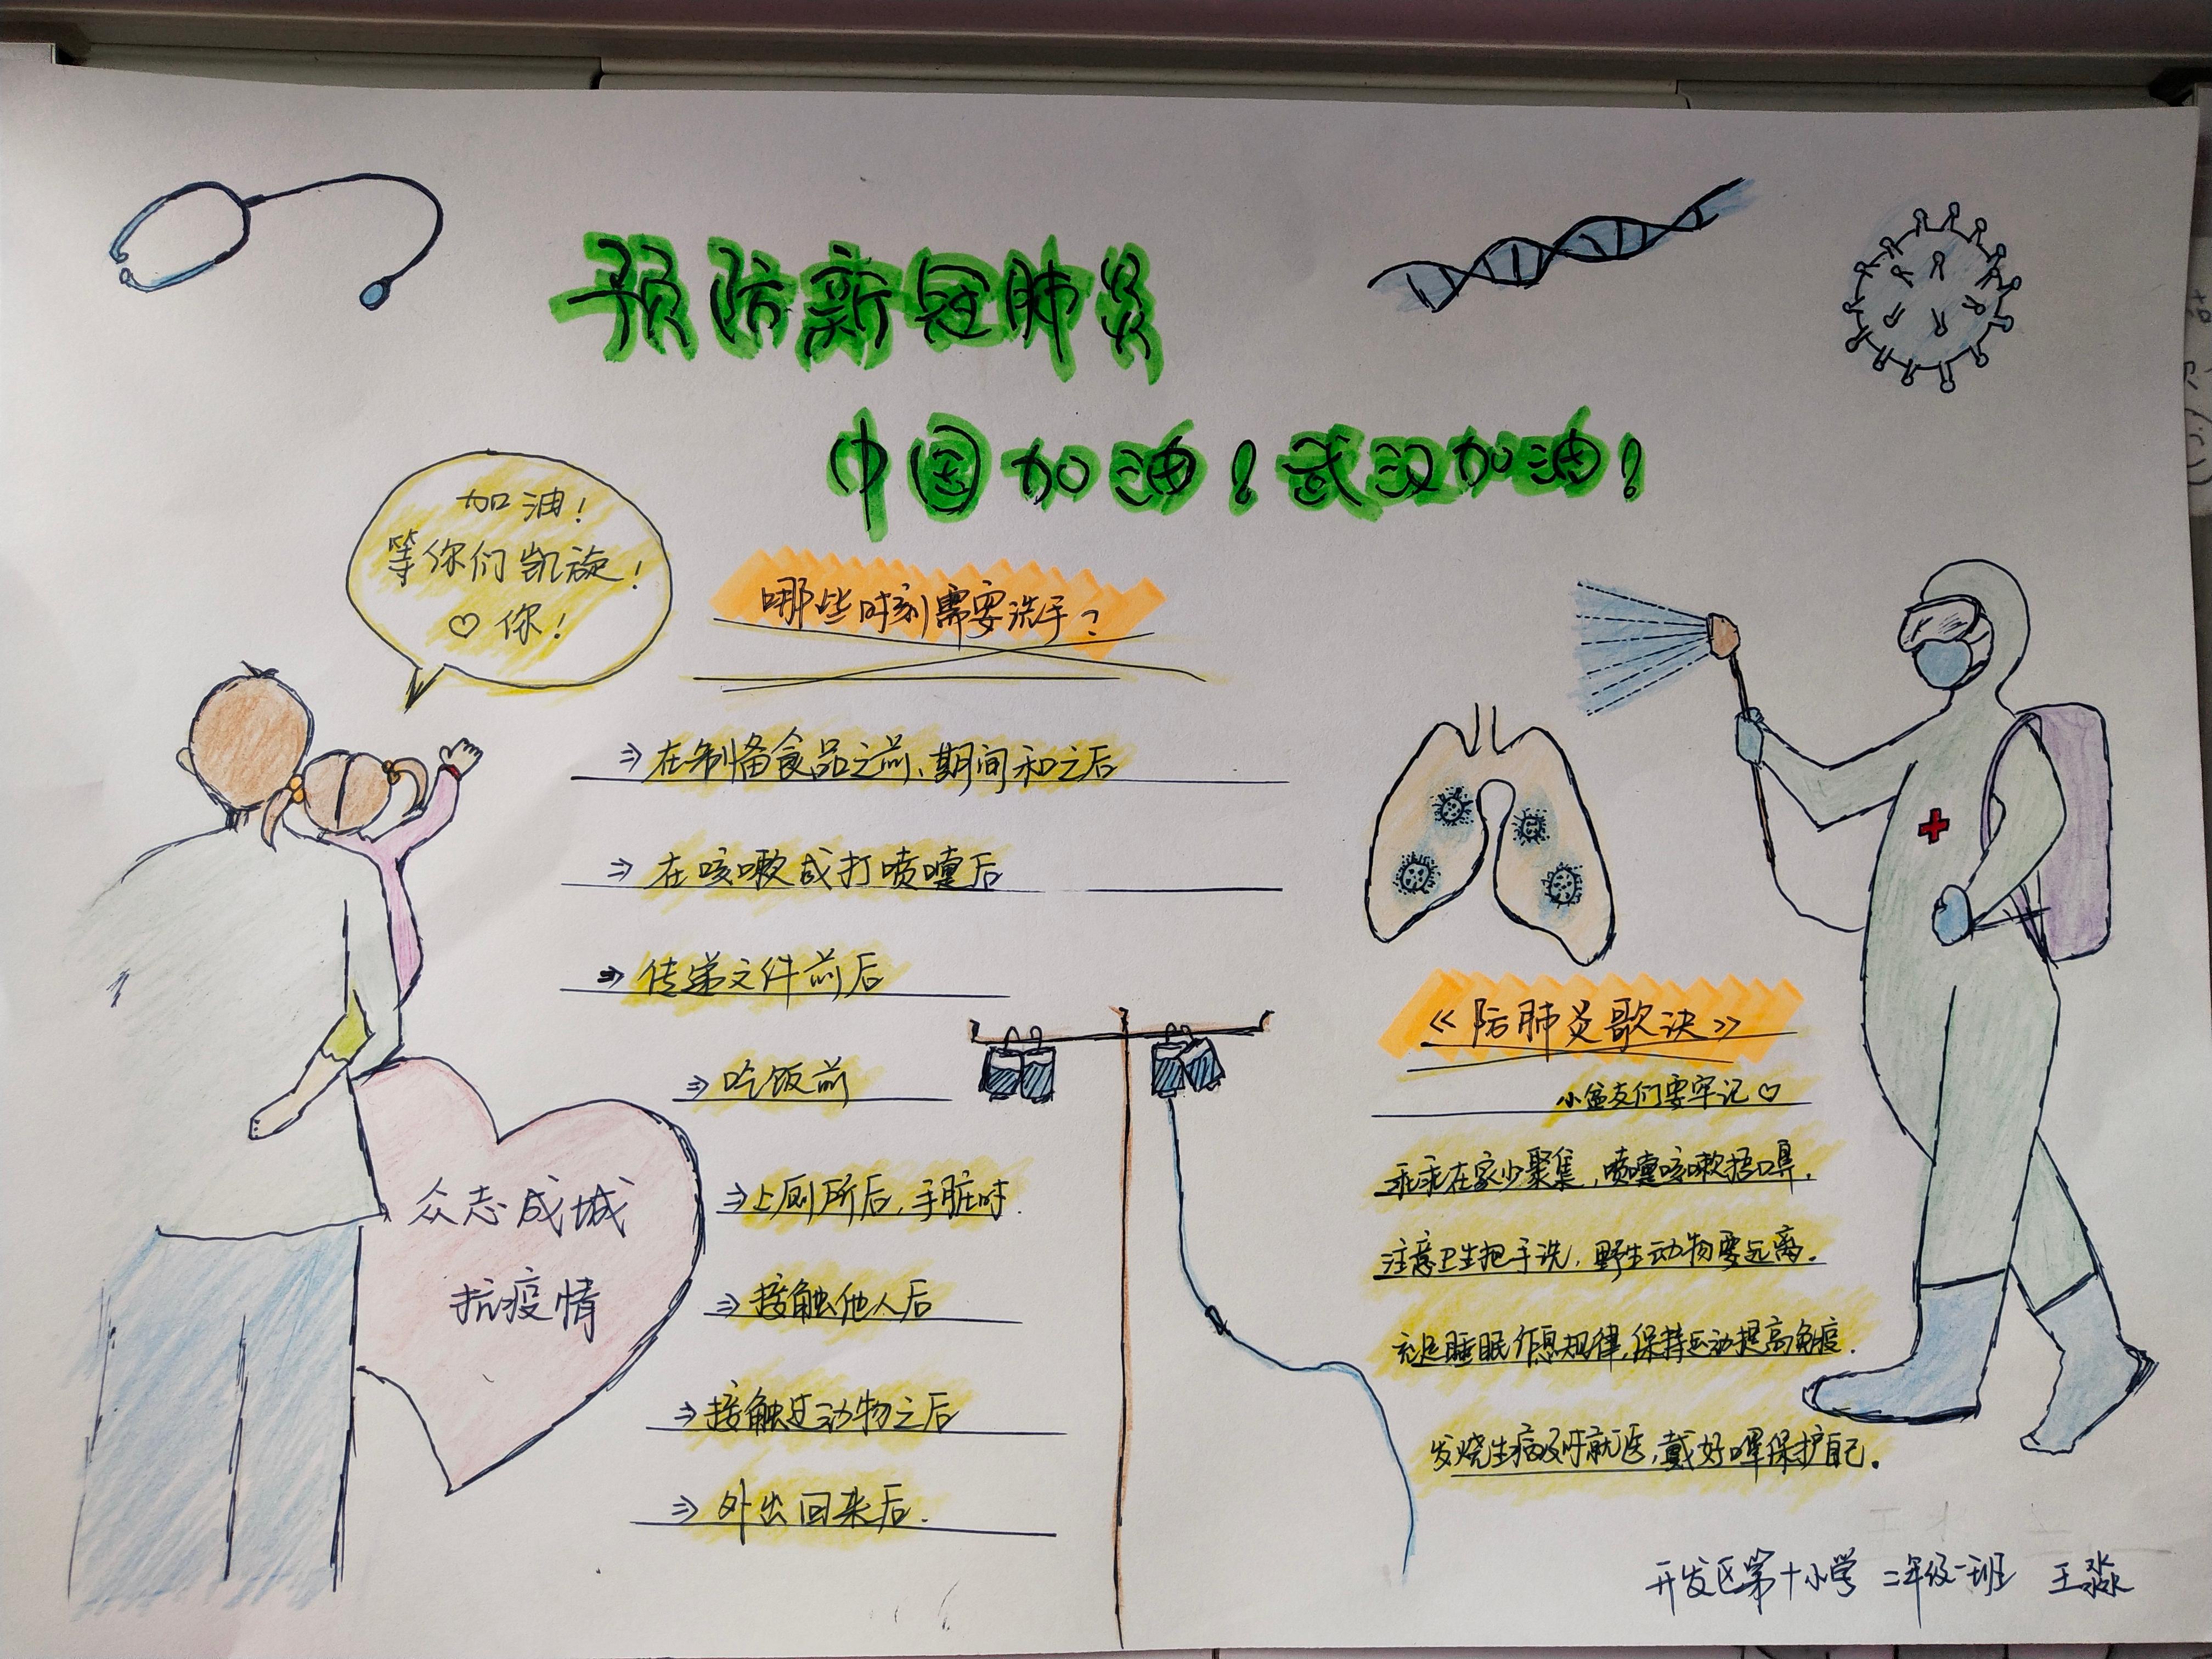 预防新冠肺炎
中国加油！武汉加油！
加油！
等你们凯旋！
♡你！
哪些时刻需要洗手？
⇒在制备食品之前、期间和之后
⇒在咳嗽或打喷嚏后
⇒传递文件前后
⇒吃饭前
⇒上厕所后，手脏时.
⇒接触他人后
⇒接触过动物之后
⇒外出回来后.
众志成城
抗疫情
《防肺炎歌诀》
小盆友们要牢记♡
乖乖在家少聚集，喷嚏咳嗽捂口鼻.
注意卫生把手洗，野生动物要远离.
充足睡眠作息规律，保持运动提高免疫.
发烧生病及时就医，戴好罩保护自己.
开发区第十小学 二年级一班 王淼